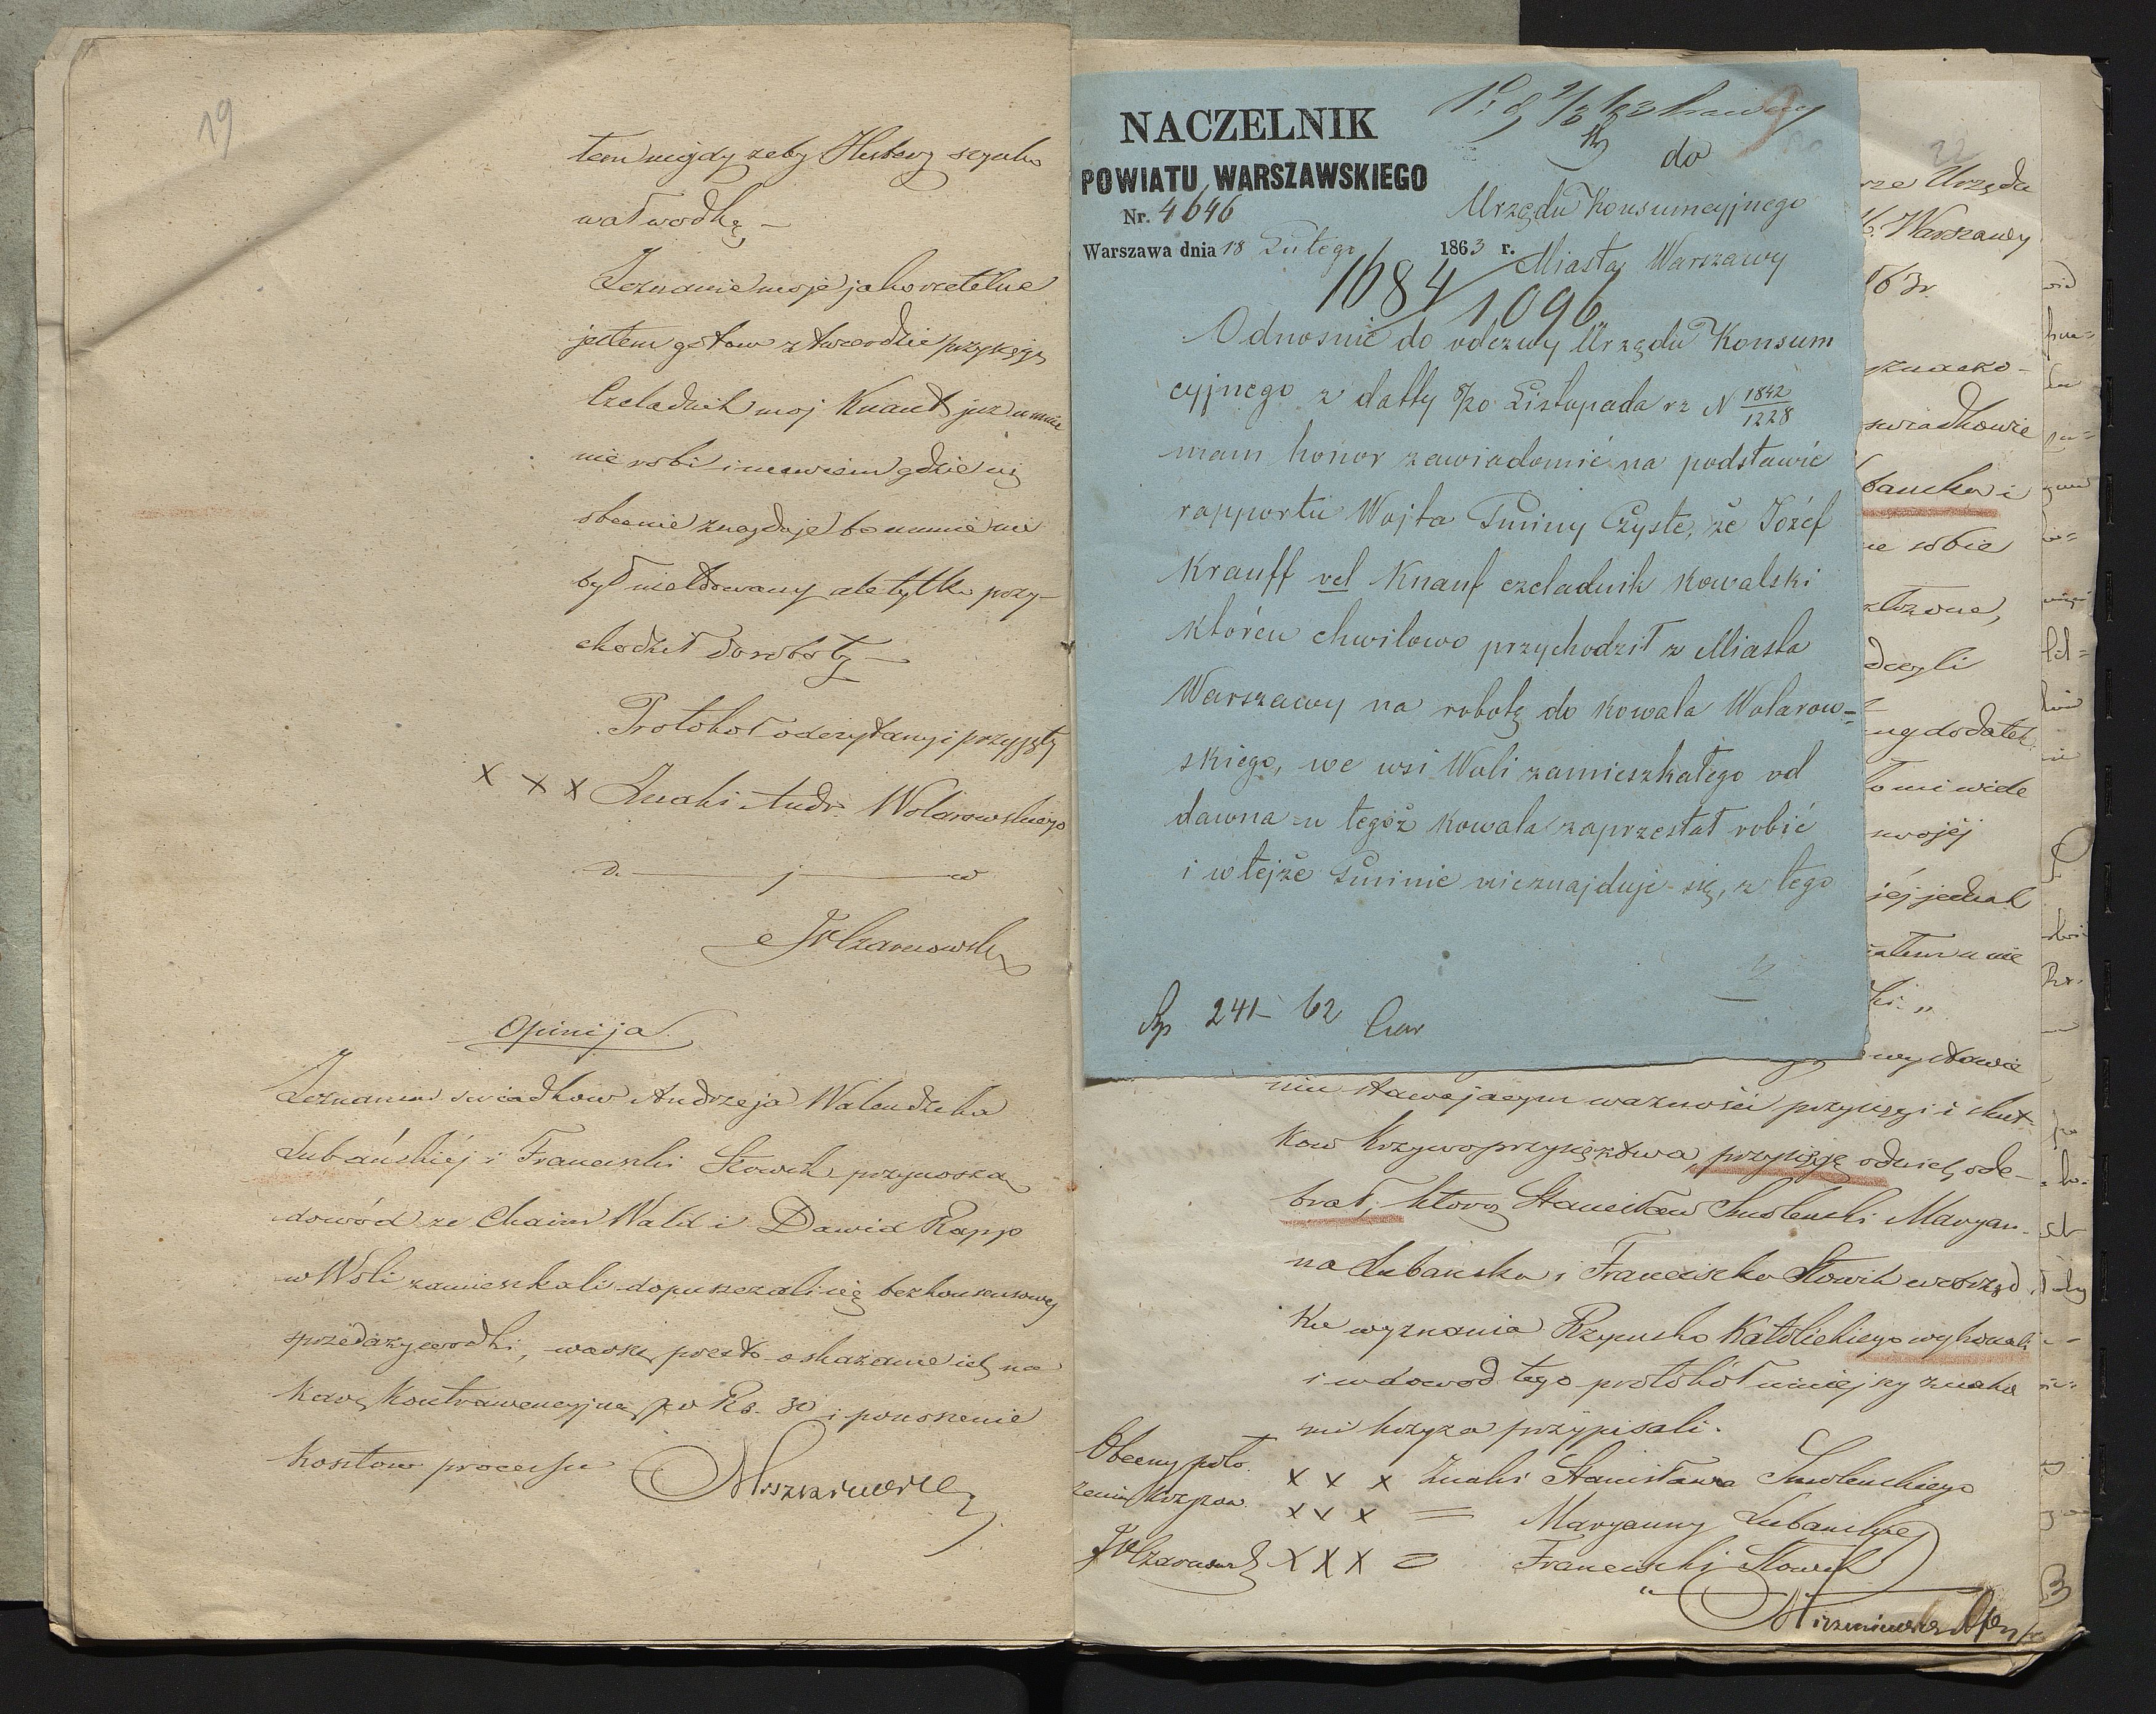 19
tem nigdy żeby Hersberg szynko
wał wodkę –
Zeznanie moje jako rzetelne
jestem gotow stwierdzić przysięgą
Czeladnik moj Knauf już u mnie
nie robi i niewiem gdzie się
obecnie znajduje bo u mnie nie
był meldowany ale tylko przy-
chodził do roboty –
Protokoł odczytany i przyjęty
x x x Znaki Andr. Wolarowskiego
JWCzarnowski
Opinija
Zeznania swiadkow Andrzeja Walendzika
Lubańskiéj i Franciszki Słowik przynoszą
dowód że Chaim Wald i Dawid Rapp
w Woli zamieszkali dopuszczali się bezkonsensowej
sprzedaży wodki, wnoszę przeto o skazanie ich na
karę kontrawencyjną po Rs. 30 i ponoszenie
kosztow processu
NACZELNIK
POWIATU WARSZAWSKIEGO
Nr. 4646
Warszawa dnia 18 Lutego 1863 r.
do
Urzędu Konsumcyjnego
Miasta Warszawy
1084/1096
Odnośnie do odezwy Urzędu Konsum
cyjnego z datty 8/20 Listopada rz N 1842/1228
mam honor zawiadomić na podstawie
rapportu Wojta Gminy Czyste, że Józef
Krauff vel Knauf czeladnik kowalski
którẽn chwilowo przychodził z Miasta
Warszawy na robotę do kowala Wolarow=
skiego, we wsi Woli zamieszkałego od
dawna u tegoż kowala zaprzestał robić
i w tejże Gminie nieznajduje się, z tego
Rp 241 – 62
22
rze Urzędu
Warszawy
63r.
swiadkowie
bańska i
ne sobie
dczyli
ng dodatek
swojéj
jéj jednak
niu stawającym ważności przysięgi i skut-
kow krzywoprzysięztwa przysięgę od nich ode-
brał, którą Stanisław Smoleński Maryan-
na Lubańska i Franciszka Słowik w obrząd
ku wyznania Rzymsko Katolickiego wykonali
i w dowod tego protokół niniejszy znaka
mi krzyża przypisali.
Obecny poło
żeniu krzyżow
JWCzarnowski
x x x Znaki Stanisława Smoleńskiego
x x x = Maryanny Lubańskiej
x x x = Franciszki Słowik